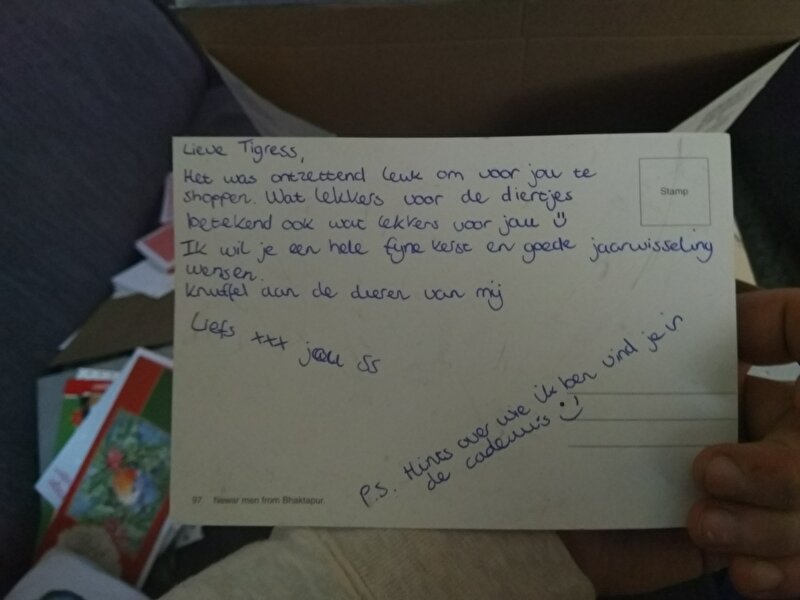 Lieve Tigress,
Het was ontzettend leuk om voor jou te
shoppen. Wat lekkers voor de diertjes
betekend ook wat lekkers voor jou :)
Ik wil je een hele fijne kerst en goede jaarwisseling
wensen.
Knuffel aan de dieren van mij
Liefs xxx jou SS
P.S. Hints over wie ik ben vind je in
de cadeaus :)
Stamp
97. Newar men from Bhaktapur.